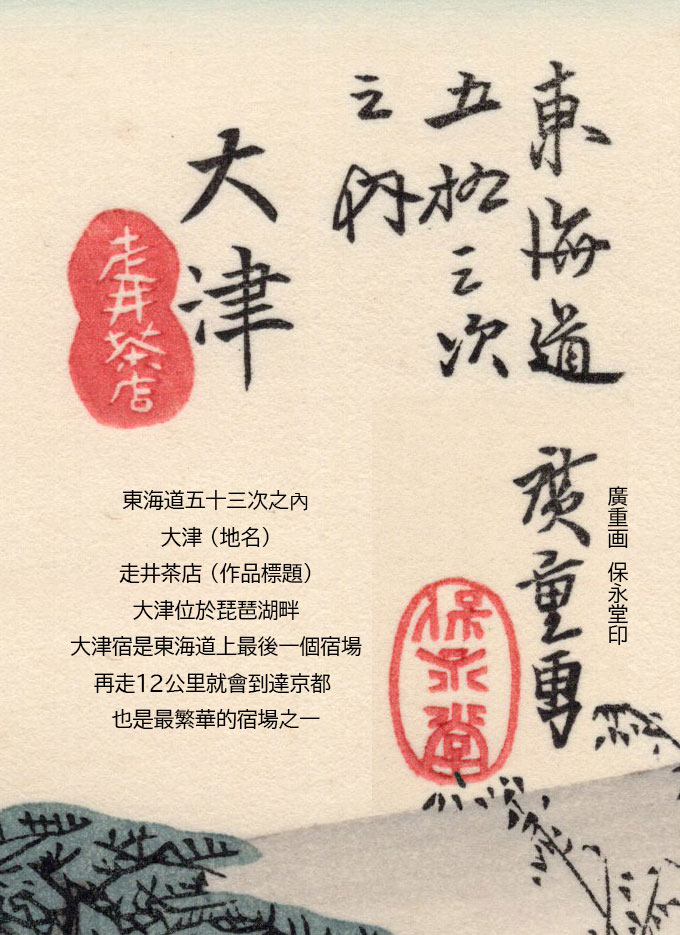 東海道
五拾三次
之内
大津
走井茶店
廣重画 保永堂印
廣重画
保永堂
東海道五十三次之內
大津（地名）
走井茶店（作品標題）
大津位於琵琶湖畔
大津宿是東海道上最後一個宿場
再走12公里就會到達京都
也是最繁華的宿場之一